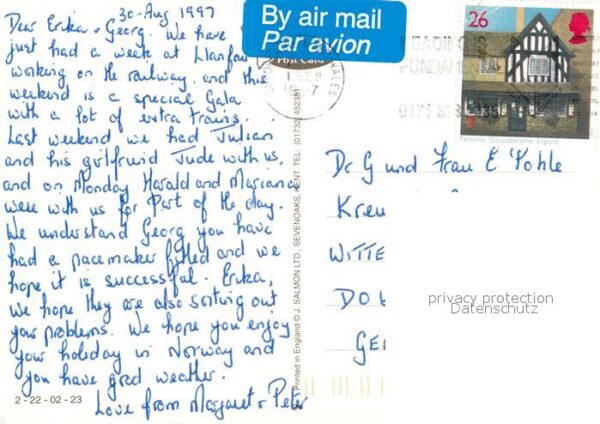 30-Aug 1997
Dear Erika + Georg. We have
just had a week at Llanfair
working on the railway, and this
weekend is a special Gala
with a lot of extra trains.
Last weekend we had Julian
and his girlfriend Jude with us,
and on Monday Harald and Marianne
were with us for part of the day.
We understand Georg you have
had a pacemaker fitted and we
hope it is successful. Erika,
we hope they are also sorting out
your problems. We hope you enjoy
your holiday in Norway and
you have good weather.
Love from Margaret + Peter
2-22-02-23
By air mail
Par avion
Post Card
Printed in England © J. SALMON LTD., SEVENOAKS, KENT. TEL: (01732) 452381
26
Painswick, Gloucestershire, England
Dr G und Frau E Pohle
Kreu
WITTE
DO
GE
privacy protection
Datenschutz